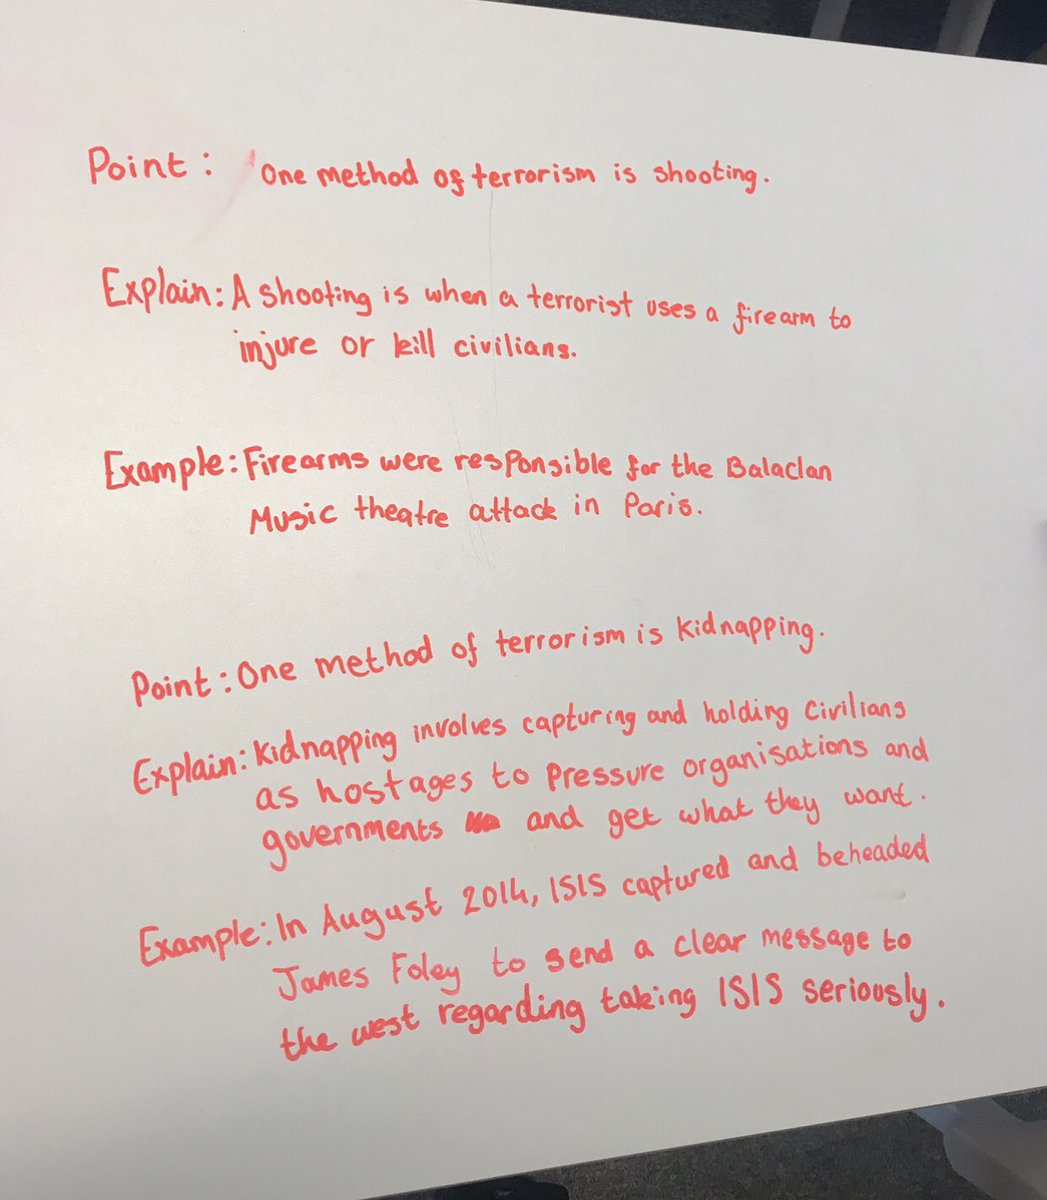 Point: One method of terrorism is shooting.
Explain: A shooting is when a terrorist uses a firearm to
injure or kill civilians.
Example: Firearms were responsible for the Balaclan
Music theatre attack in Paris.
Point: One method of terrorism is kidnapping.
Explain: Kidnapping involves capturing and holding civilians
as hostages to pressure organisations and
governments and get what they want.
Example: In August 2014, ISIS captured and beheaded
James Foley to send a clear message to
the west regarding taking ISIS seriously.